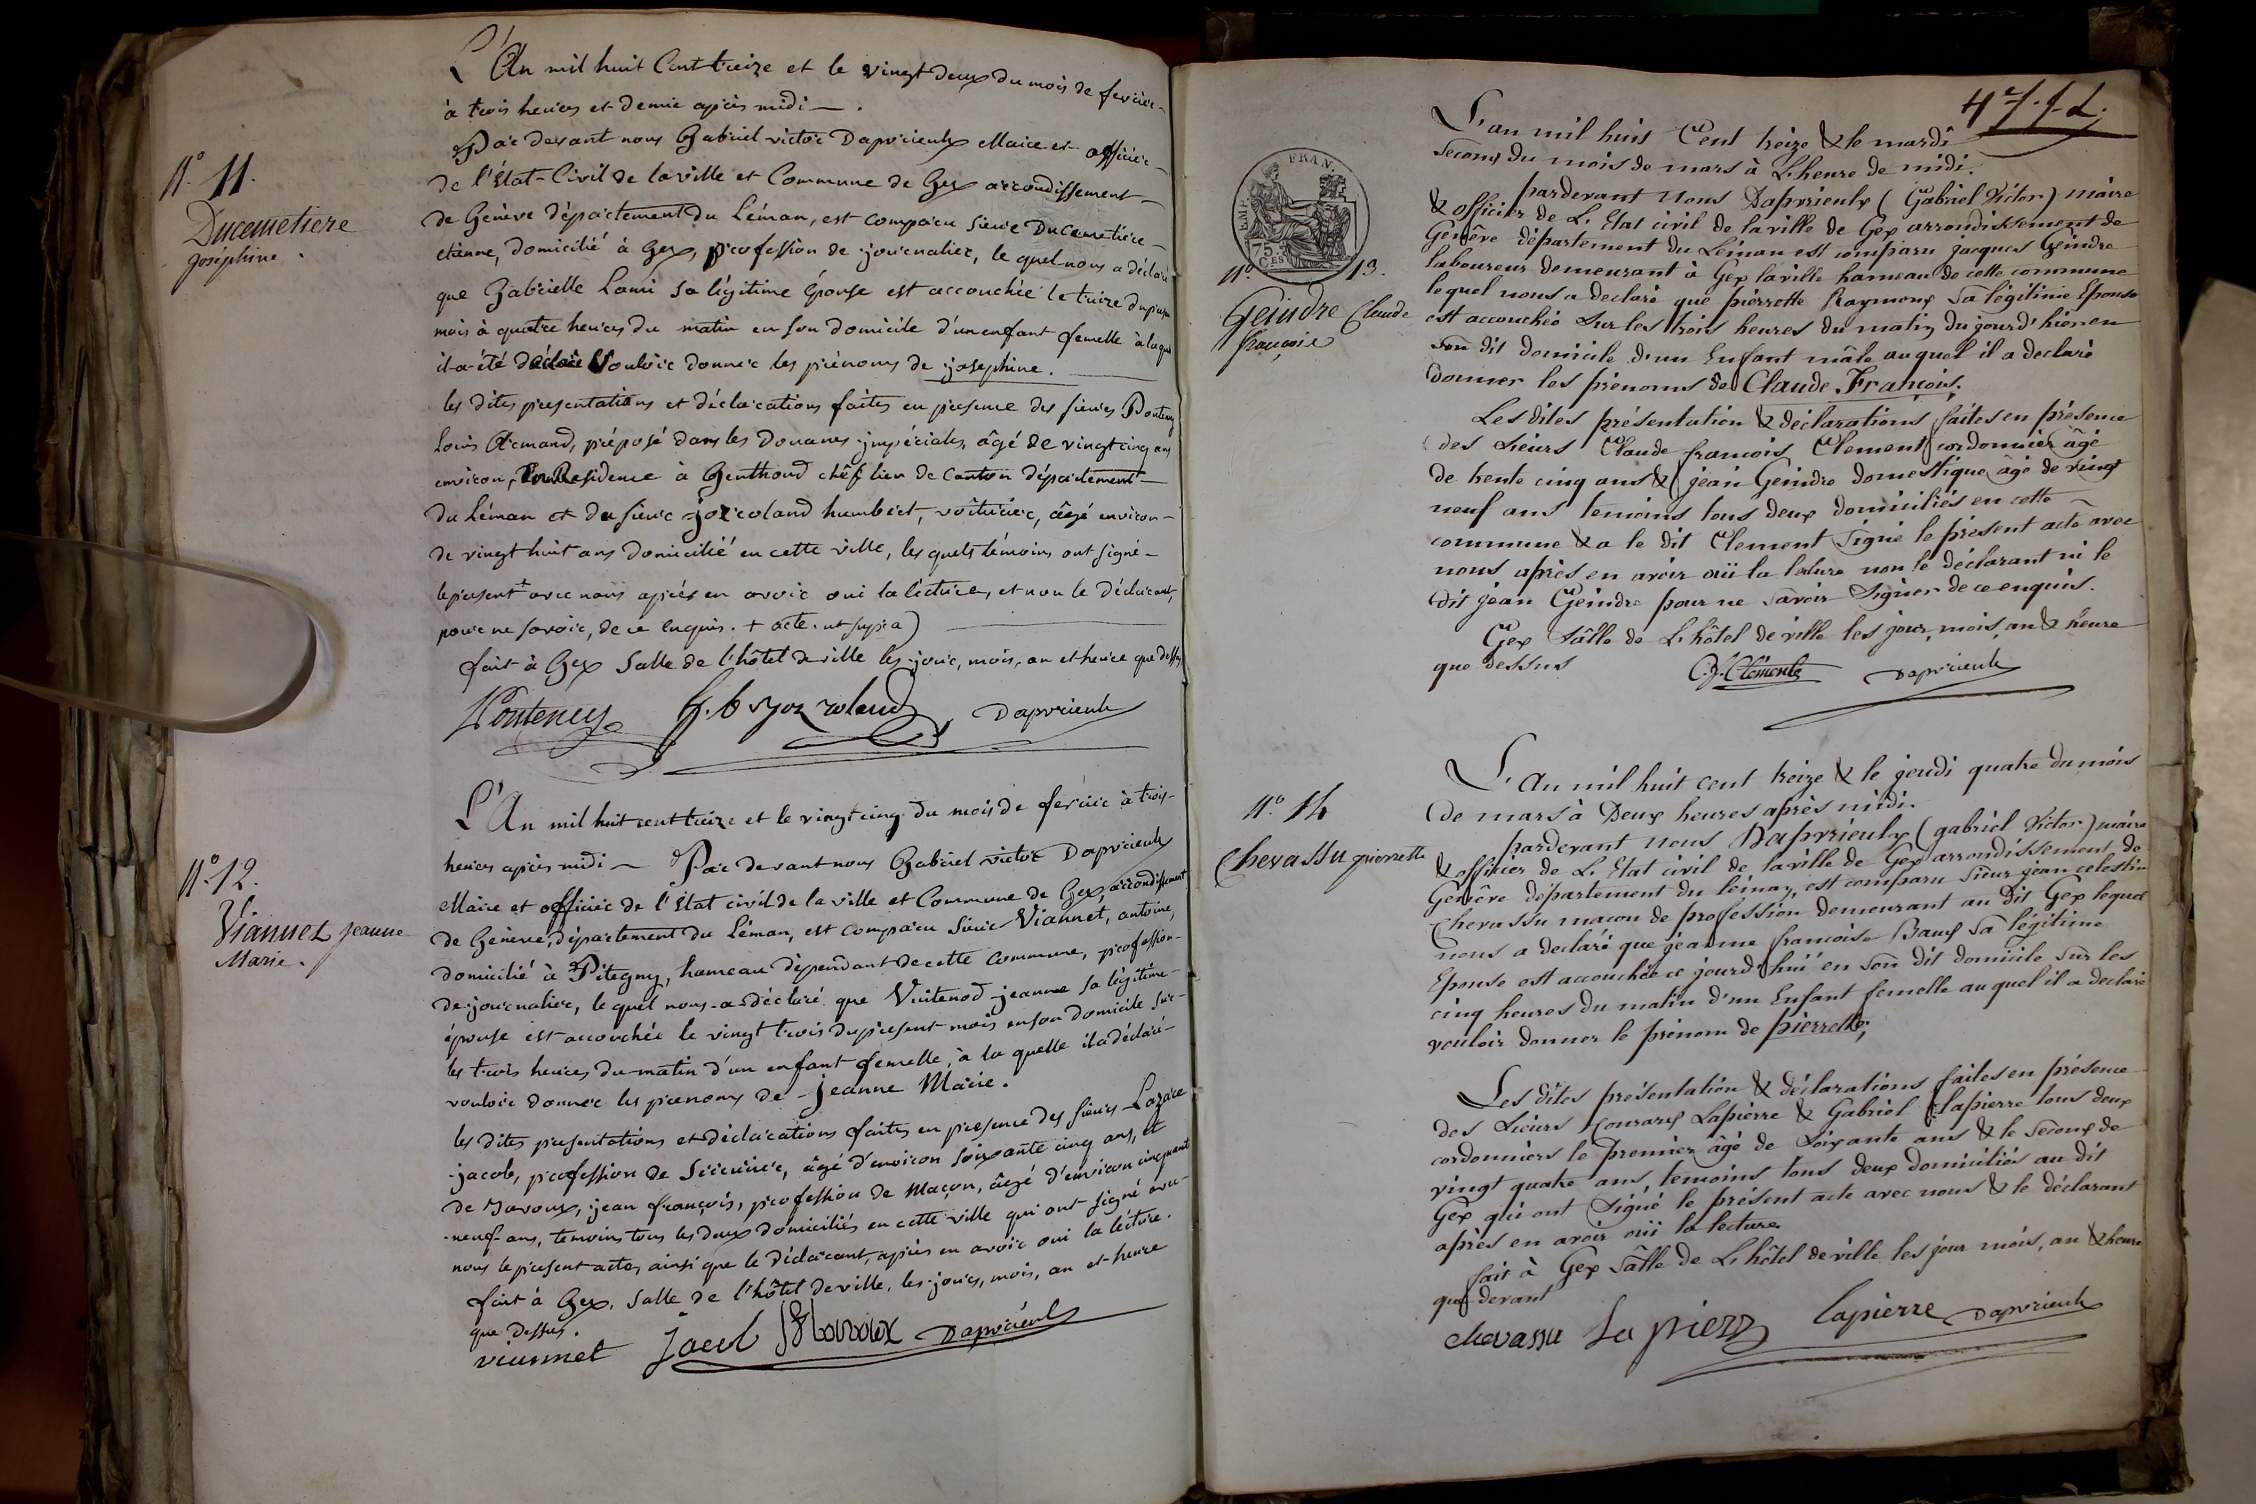 L'An mil huit Cent treize et le vingt deux du mois de fevrier
à trois heures et demie après midi.
Par devant nous Gabriel victor Daprrieulx Maire et officier
de l'État-Civil de la ville et Commune de Gex arrondissement
de Genève département du Léman, est comparu sieur Ducemetiere
etienne, domicilié à Gex, profession de journalier, le quel nous a déclaré
que Gabrielle Lami sa légitime épouse est accouchée le treize du présent
mois à quatre heures du matin en son domicile d'un enfant femelle à laquelle
il a été déclaré Vouloir donner les prénoms de josephine.
les dites presentations et déclarations faites en presence des sieurs Ponteney
Louis Armand, préposé dans les Douanes impériales, âgé de vingt cinq ans
environ, En Residence à Genthoud chêf lieu de Canton département
du Léman et du sieur joz roland humbert, voîturier, âgé environ
de vingt huit ans domicilié en cette ville, les quels témoins ont signé
le present + avec nous après en avoir oui la lécture, et non le déclarant,
pour ne savoir, de ce enquis. + acte. ut supra)
fait à Gex Salle de l'hôtel de ville les jour, mois, an et heure que dessus
Ponteney Daprrieulx
N.° 11.
Ducemetiere
Josephine.
L'An mil huit cent treize et le vingt cinq du mois de fevrier à trois
heures après midi Par devant nous Gabriel victor Daprrieulx
Maire et officier de l'État civil de la ville et Commune de Gex, arrondissement
de Genève, département du Léman, est comparu Sieur Viannet, antoine,
domicilié à Pitegny, hameau dépendant de cette Commune, profession
de journalier, le quel nous a déclaré que Vuitenod jeanne sa légitime
épouse est accouchée le vingt trois du présent mois en son domicile sur
les trois heures du matin d'un enfant femelle, à la quelle il a déclaré
vouloir donner les prenoms de jeanne Marie.
les dites presentations et déclarations faites en presence des sieurs Lazare
jacob, profession de Serrurier, âgé d'environ soixante cinq ans, et
de Mavoux, jean françois, profession de Maçon, âgé d'environ cinquante
neuf ans, temoins tous les deux domiciliés en cette ville qui ont signé avec
nous le present acte, ainsi que le déclarant, après en avoir oui la lécture.
fait à Gex, Salle de l'hôtel de ville, les jours, mois, an et heure
que dessus.
viannet Jacob Daprrieulx
N.° 12.
Viannet jeanne
Marie.
L'an mil huit Cent treize & le mardi
Second du mois de mars à L'heure de midi.
pardevant Nous Daprrieulx (Gabriel Victor) maire
& officier de L'Etat civil de la ville de Gex arrondissement de
Genêve département du Léman est comparu jacques Geindre
laboureur demeurant à Gex la ville hameau de cette commune
lequel nous a declaré que pierrette Raymond Sa légitime Epouse
est accouchée Sur les trois heures du matin du jourd'hier en
son dit domicile d'un Enfant mâle auquel il a declaré
donner les prenoms de Claude François.
Les dites présentation & déclarations faites en présence
des Sieurs Claude françois Clement cordonnier âgé
de trente cinq ans & jean Geindre domestique âgé de vingt
neuf ans temoins tous deux domiciliés en cette
commune & a le dit Clement Signé le présent acte avec
nous après en avoir oüi la lecture non le déclarant ni le
dit jean Geindre pour ne Savoir Signer de ce enquis.
Gex Sâlle de L'hôtel de ville les jour, mois, an & heure
que dessus
C. f. Clement Daprrieulx
EMP. FRAN.
75 CES
N.° 13.
Geindre Claude
françois
L'An mil huit cent treize & le jeudi quatre du mois
de mars à Deux heures après midi.
pardevant Nous Daprrieulx (gabriel Victor) maire
& officier de L'Etat civil de la ville de Gex arrondissement de
Genêve département du leman, est comparu Sieur jean celestin
Chevassu maçon de profession demeurant au dit Gex lequel
nous a declaré que jeanne francoise Baud Sa légitime
Epouse est accouchée ce jourd'hui en son dit domicile sur les
cinq heures du matin d'un Enfant femelle auquel il a declaré
vouloir donner le prénom de pierrette;
Les dites présentation & déclarations faites en présence
des Sieurs Lapierre & Gabriel Lapierre tous deux
cordonniers le premier âgé de Soixante ans & le Second de
vingt quatre ans, temoins tous deux domiciliés au dit
Gex qui ont Signé le présent acte avec nous & le déclarant
après en avoir oüi la lecture
fait à Gex Sâlle de L'hôtel de ville les jour mois, an & heure
que devant
chevassu Lapierre lapierre Daprrieulx
N.° 14
Chevassu pierrette